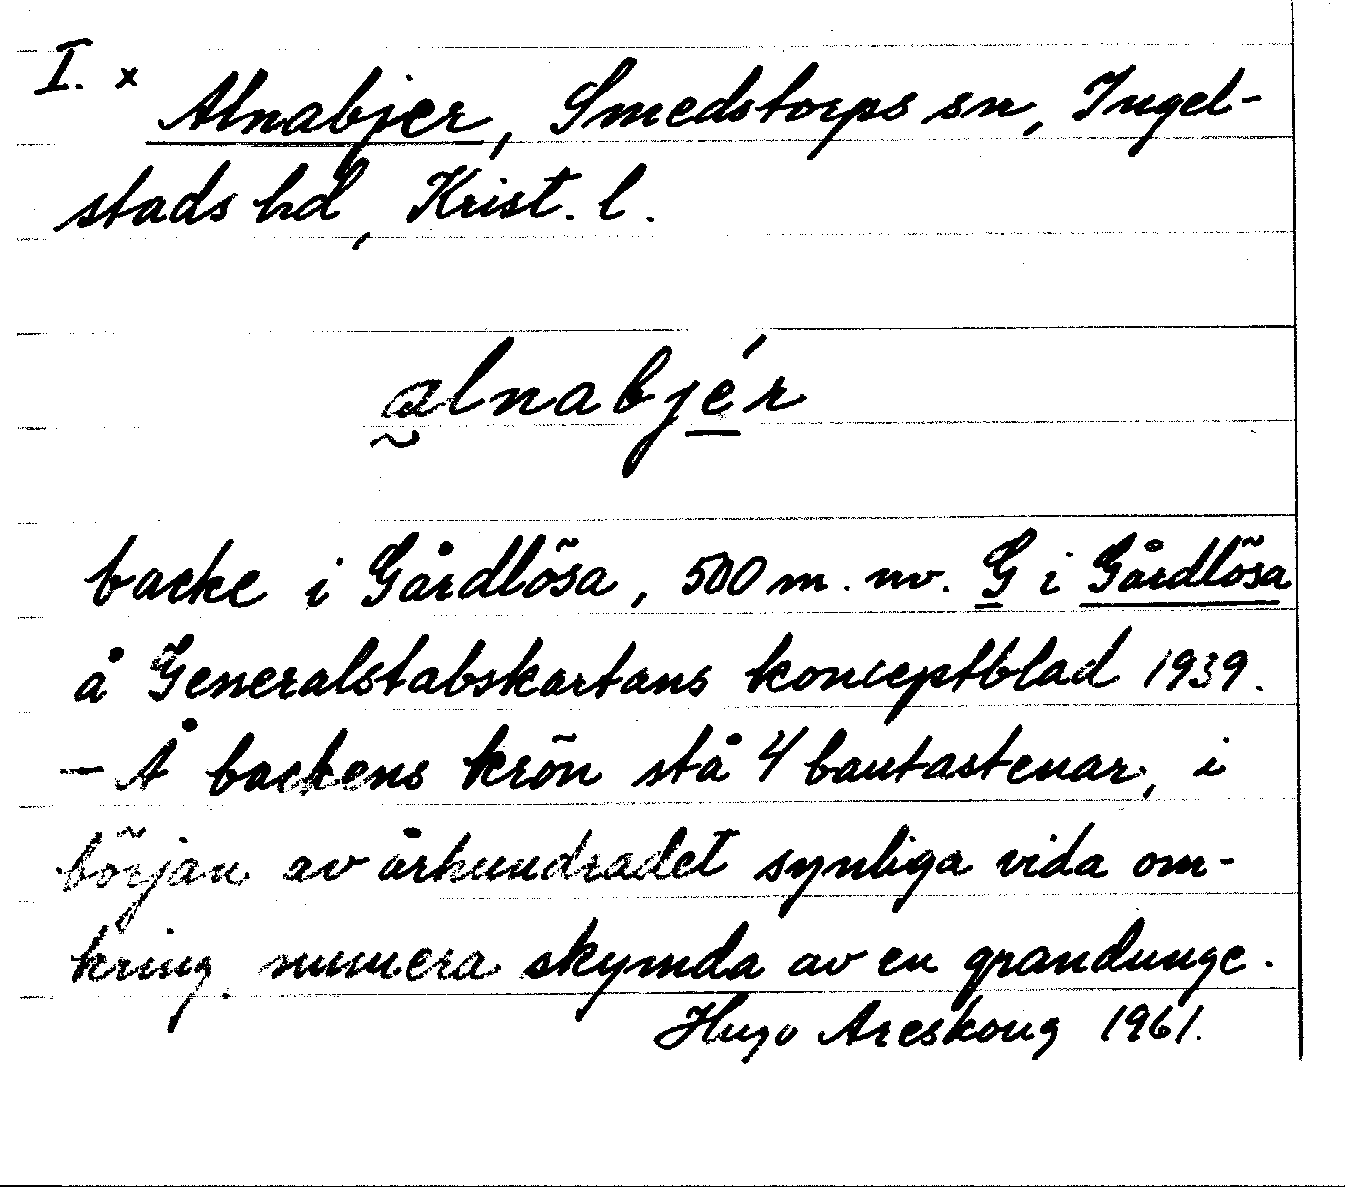 I. x
Alnabjer, Smedstorps sn, Ingel-
stads hd, Krist. l.
alnabjér
backe i Gårdlösa, 500 m. nv. G i Gårdlösa
å Generalstabskartans konceptblad 1939.
– Å backens krön stå 4 bautastenar, i
början av århundradet synliga vida om-
kring, numera skymda av en grandunge.
Hugo Areskoug 1961.